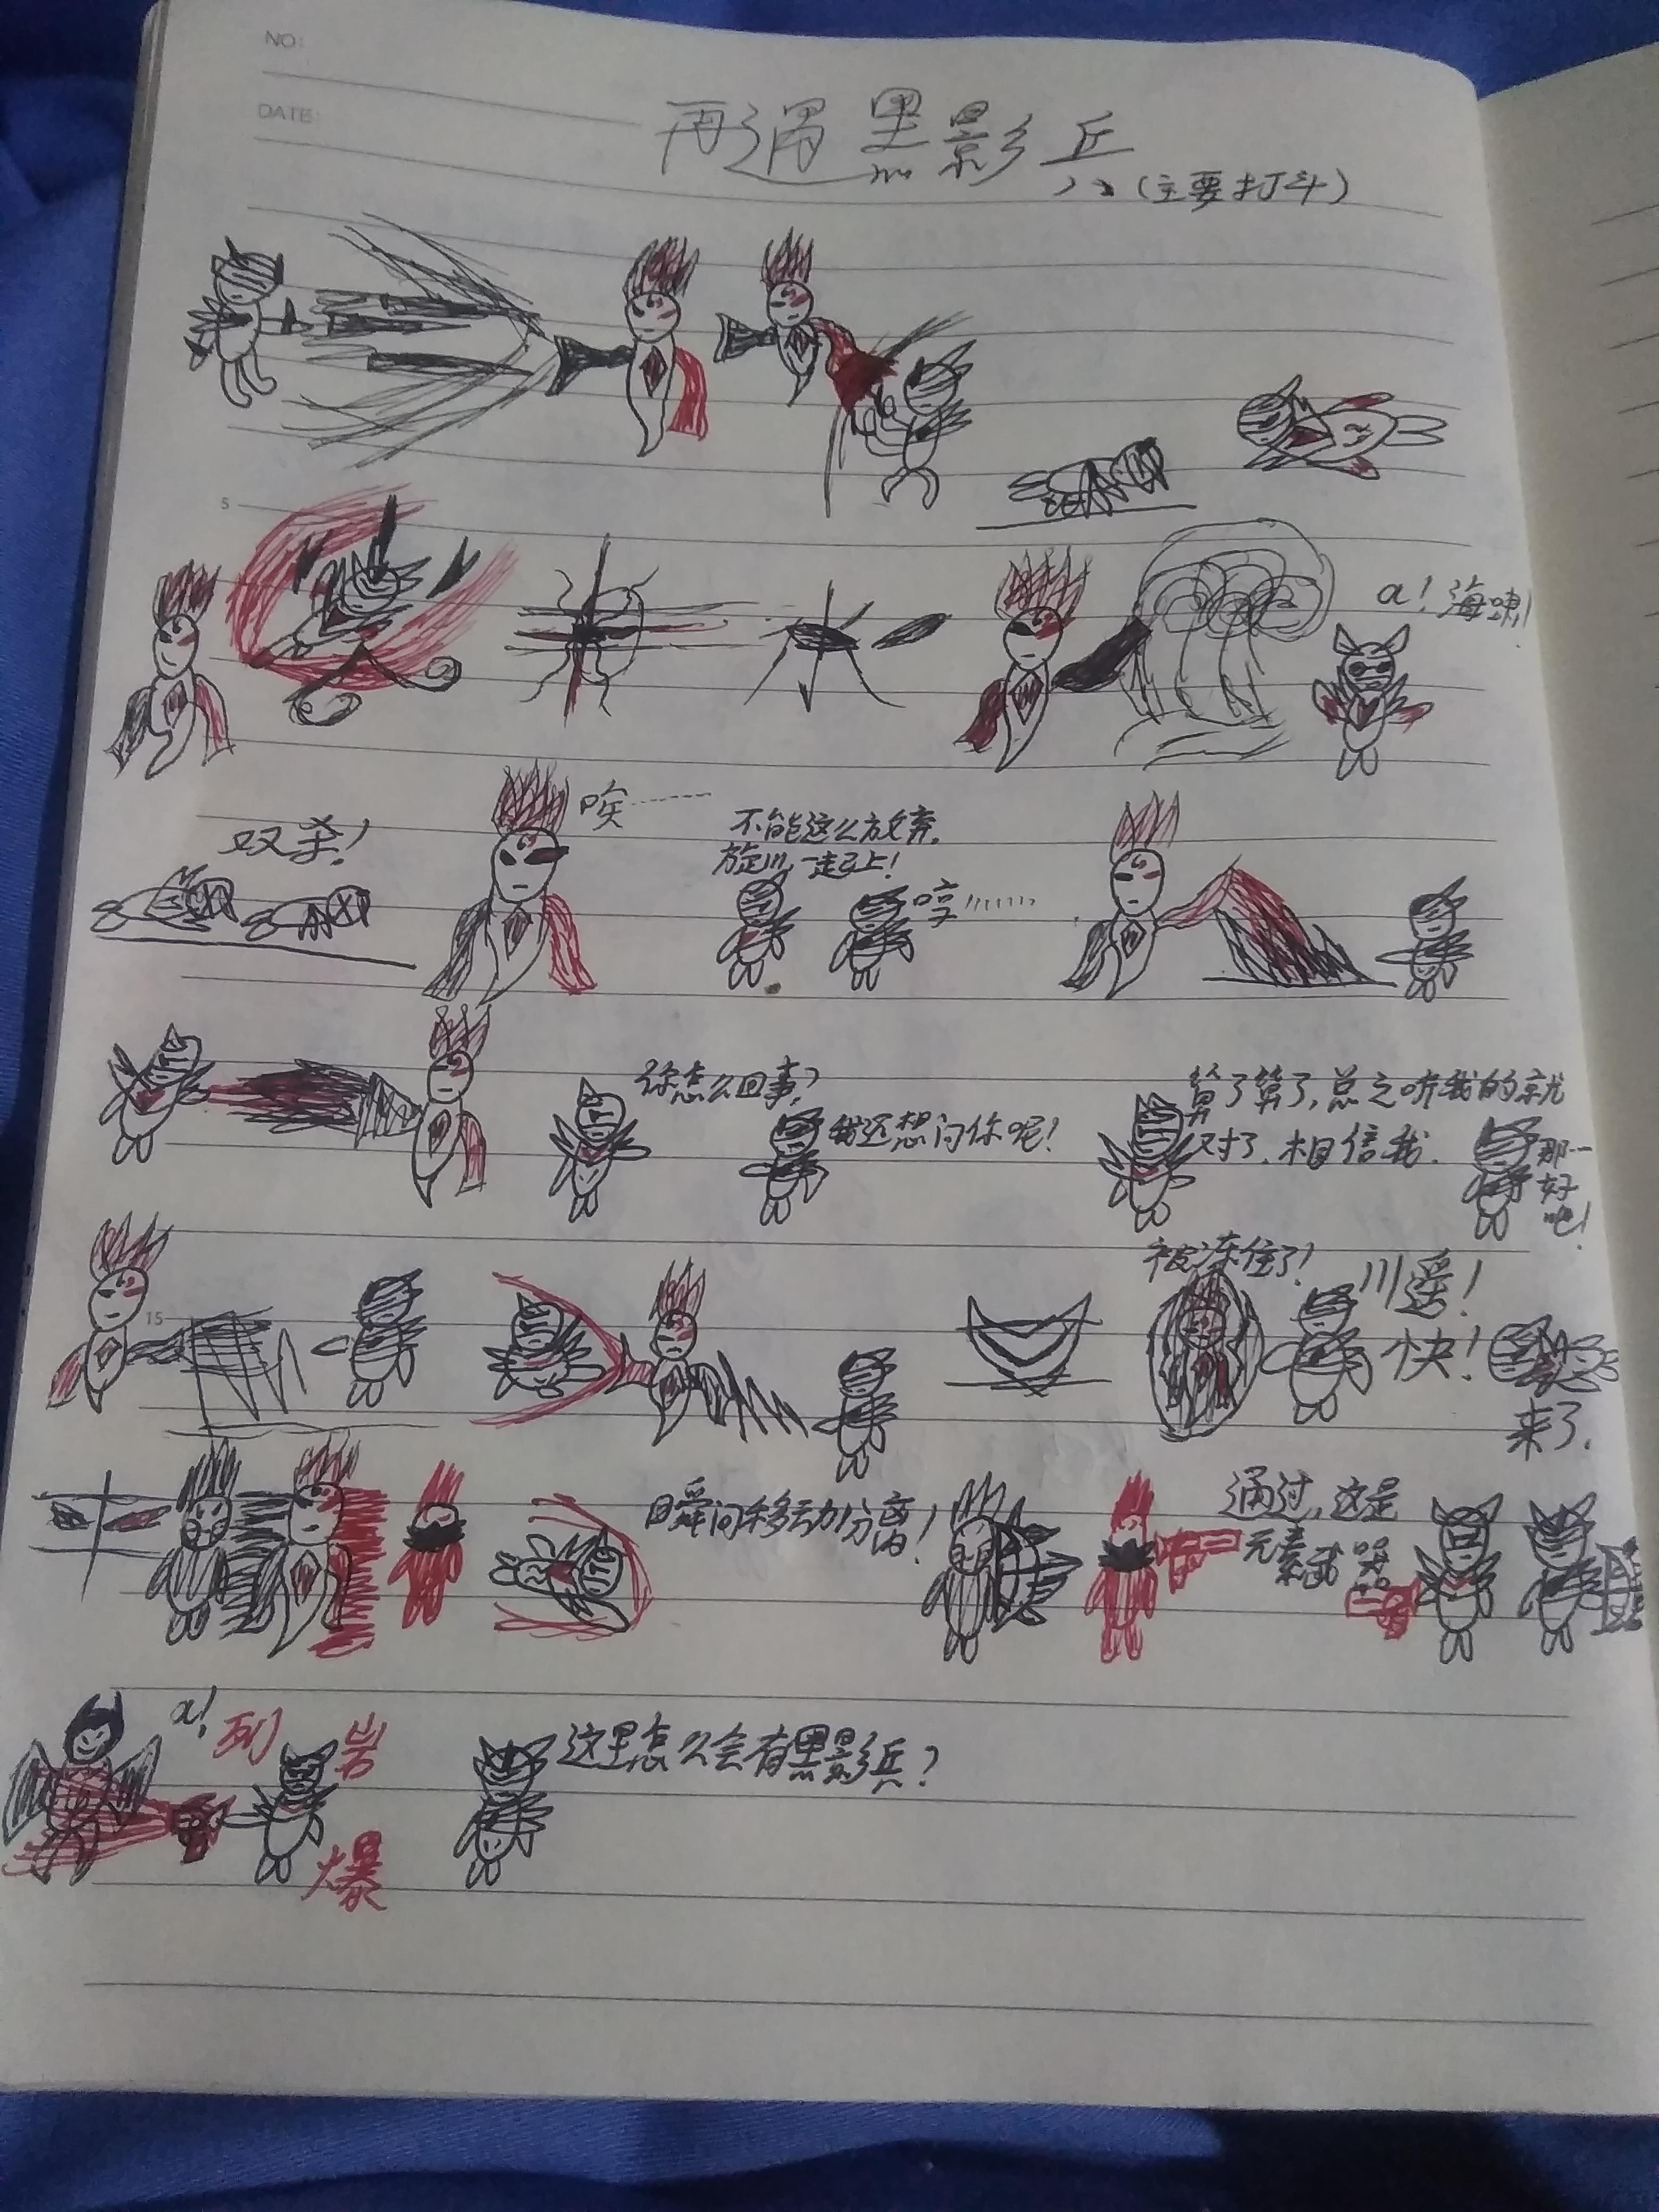 NO:
DATE:
再遇黑影兵
(主要打斗)
5
a！海啸！
双杀！
唉……
不能这么放弃,
旋川,一起上！
哼……
你怎么回事？
我还想问你呢！
算了算了,总之听我的就
对了.相信我.
那…
好
吧！
被冻住了！
川遥！
快！
来了.
15
瞬间移动分离！
通过,这是
元素武器
a！
列
岩
爆
这里怎么会有黑影兵？